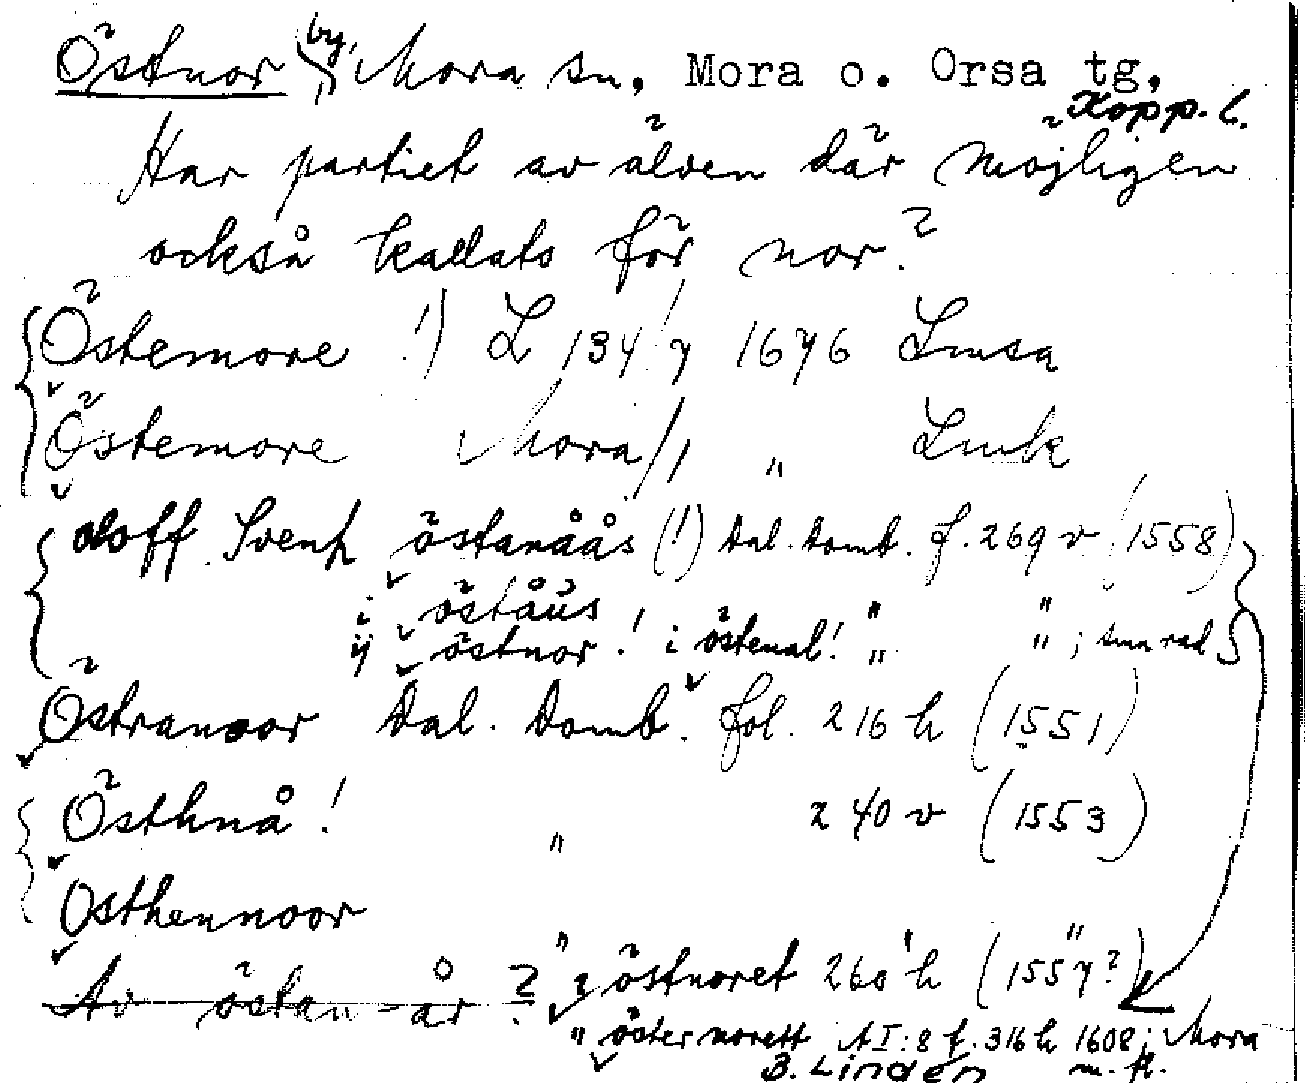 Östnor by, Mora sn, Mora o. Orsa tg,
Kopp. l.
Har partiet av älven där möjligen
också kallats för nor?
Östemore !) L 134/7 1676 Lmsa
Östemore Mora/1 " Lmk
oloff Svens östanåås (!) Dal. Domb. f. 269 v (1558)
i öståus " "
ij östnor! i östenal! " " ; sma rad
Östranoor Dal. Domb. fol. 216 h (1551)
Östhnå! " 240 v (1553)
Osthennoor
Av östan år ? " i östnoret 260 h (1557?)
" öster norett AI:8 f. 316 h 1608; Mora
B. Linden m. fl.